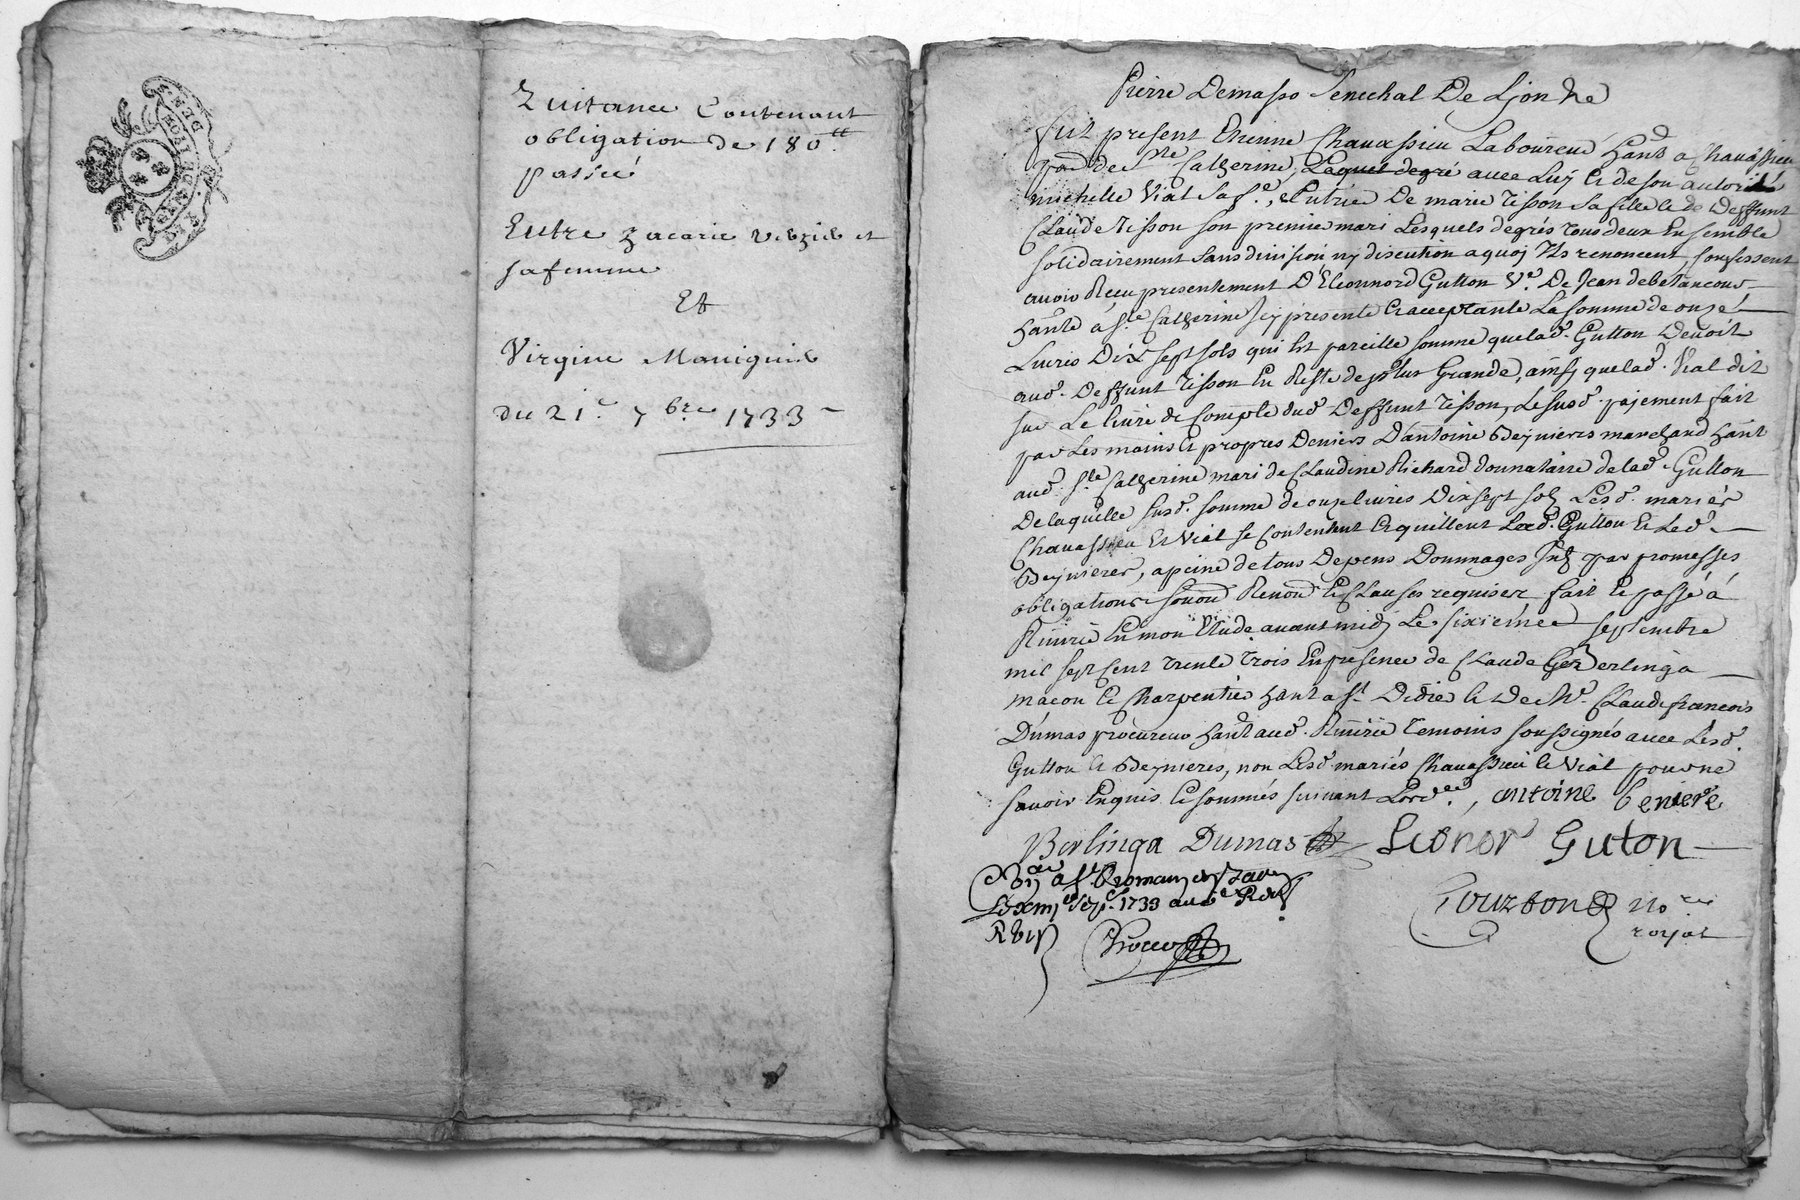 GEN DE LION
Quitance Contenant
obligation de 180tt
passée
Entre Zacarie et
sa femme
Et
Virgine Maniquit
du 21e 7bre 1733
Pierre Demasso Senechal De Lyon &c
fut present Etienne Chavassieu Laboureur hant a Chavassieu
parde Ste Catherine, Laquel degré avec Luy et de son autorité
michelle Vial sa fe, et Tutrice De marie Tisson sa fille et de Deffunt
Claude Tisson son premier mari Lesquels degrés tous deux Ensemble
solidairement sans division ny discution a quoy Ils renoncent, confessent
avoir Reçu presentement D'Eleonnord Gutton Ve De Jean debetancour
hante a Ste Catherine Icy presente et acceptante La somme de onze
Livres Dix sept sols qui Est pareille somme que lad. Gutton Devoit
aud. Deffunt Tisson En Reste de plus Grande, ainsy que lad. Vial dit
sur Le livre de Compte dud Deffunt Tisson, Le susd. payement fait
par Les mains et propres Deniers D'antoine Beynieres marchand hant
aud. Ste Catherine mari de Claudine Richard donnataire de lad. Gutton
De laquelle susd. somme de onze livres Dix sept sols Lesd. mariés
Chavassieu et Vial se Contentent et quittent Lad. Gutton et Led.
Beynieres, a peine de tous Depens Dommages Intz par promesses
obligations soumon Renon et Clauses requises fait et passé á
Riverie En mon Etude avant midy Le sixiéme septembre
mil sept cent trente trois En presence de Claude Berlinga
macon et Charpentié hant a St Didié et De Mr Claude francois
Dumas procureur hant aud. Riverie temoins soussignés avec Lesd.
Gutton et Beynieres, non Lesd mariés Chavassieu et Vial pour ne
savoir Enquis et sommés suivant Lordee, antoine beniere
Berlinga Dumas Leonor Guton
a St Romain en Jare
Le sepe 1733
nore
royal